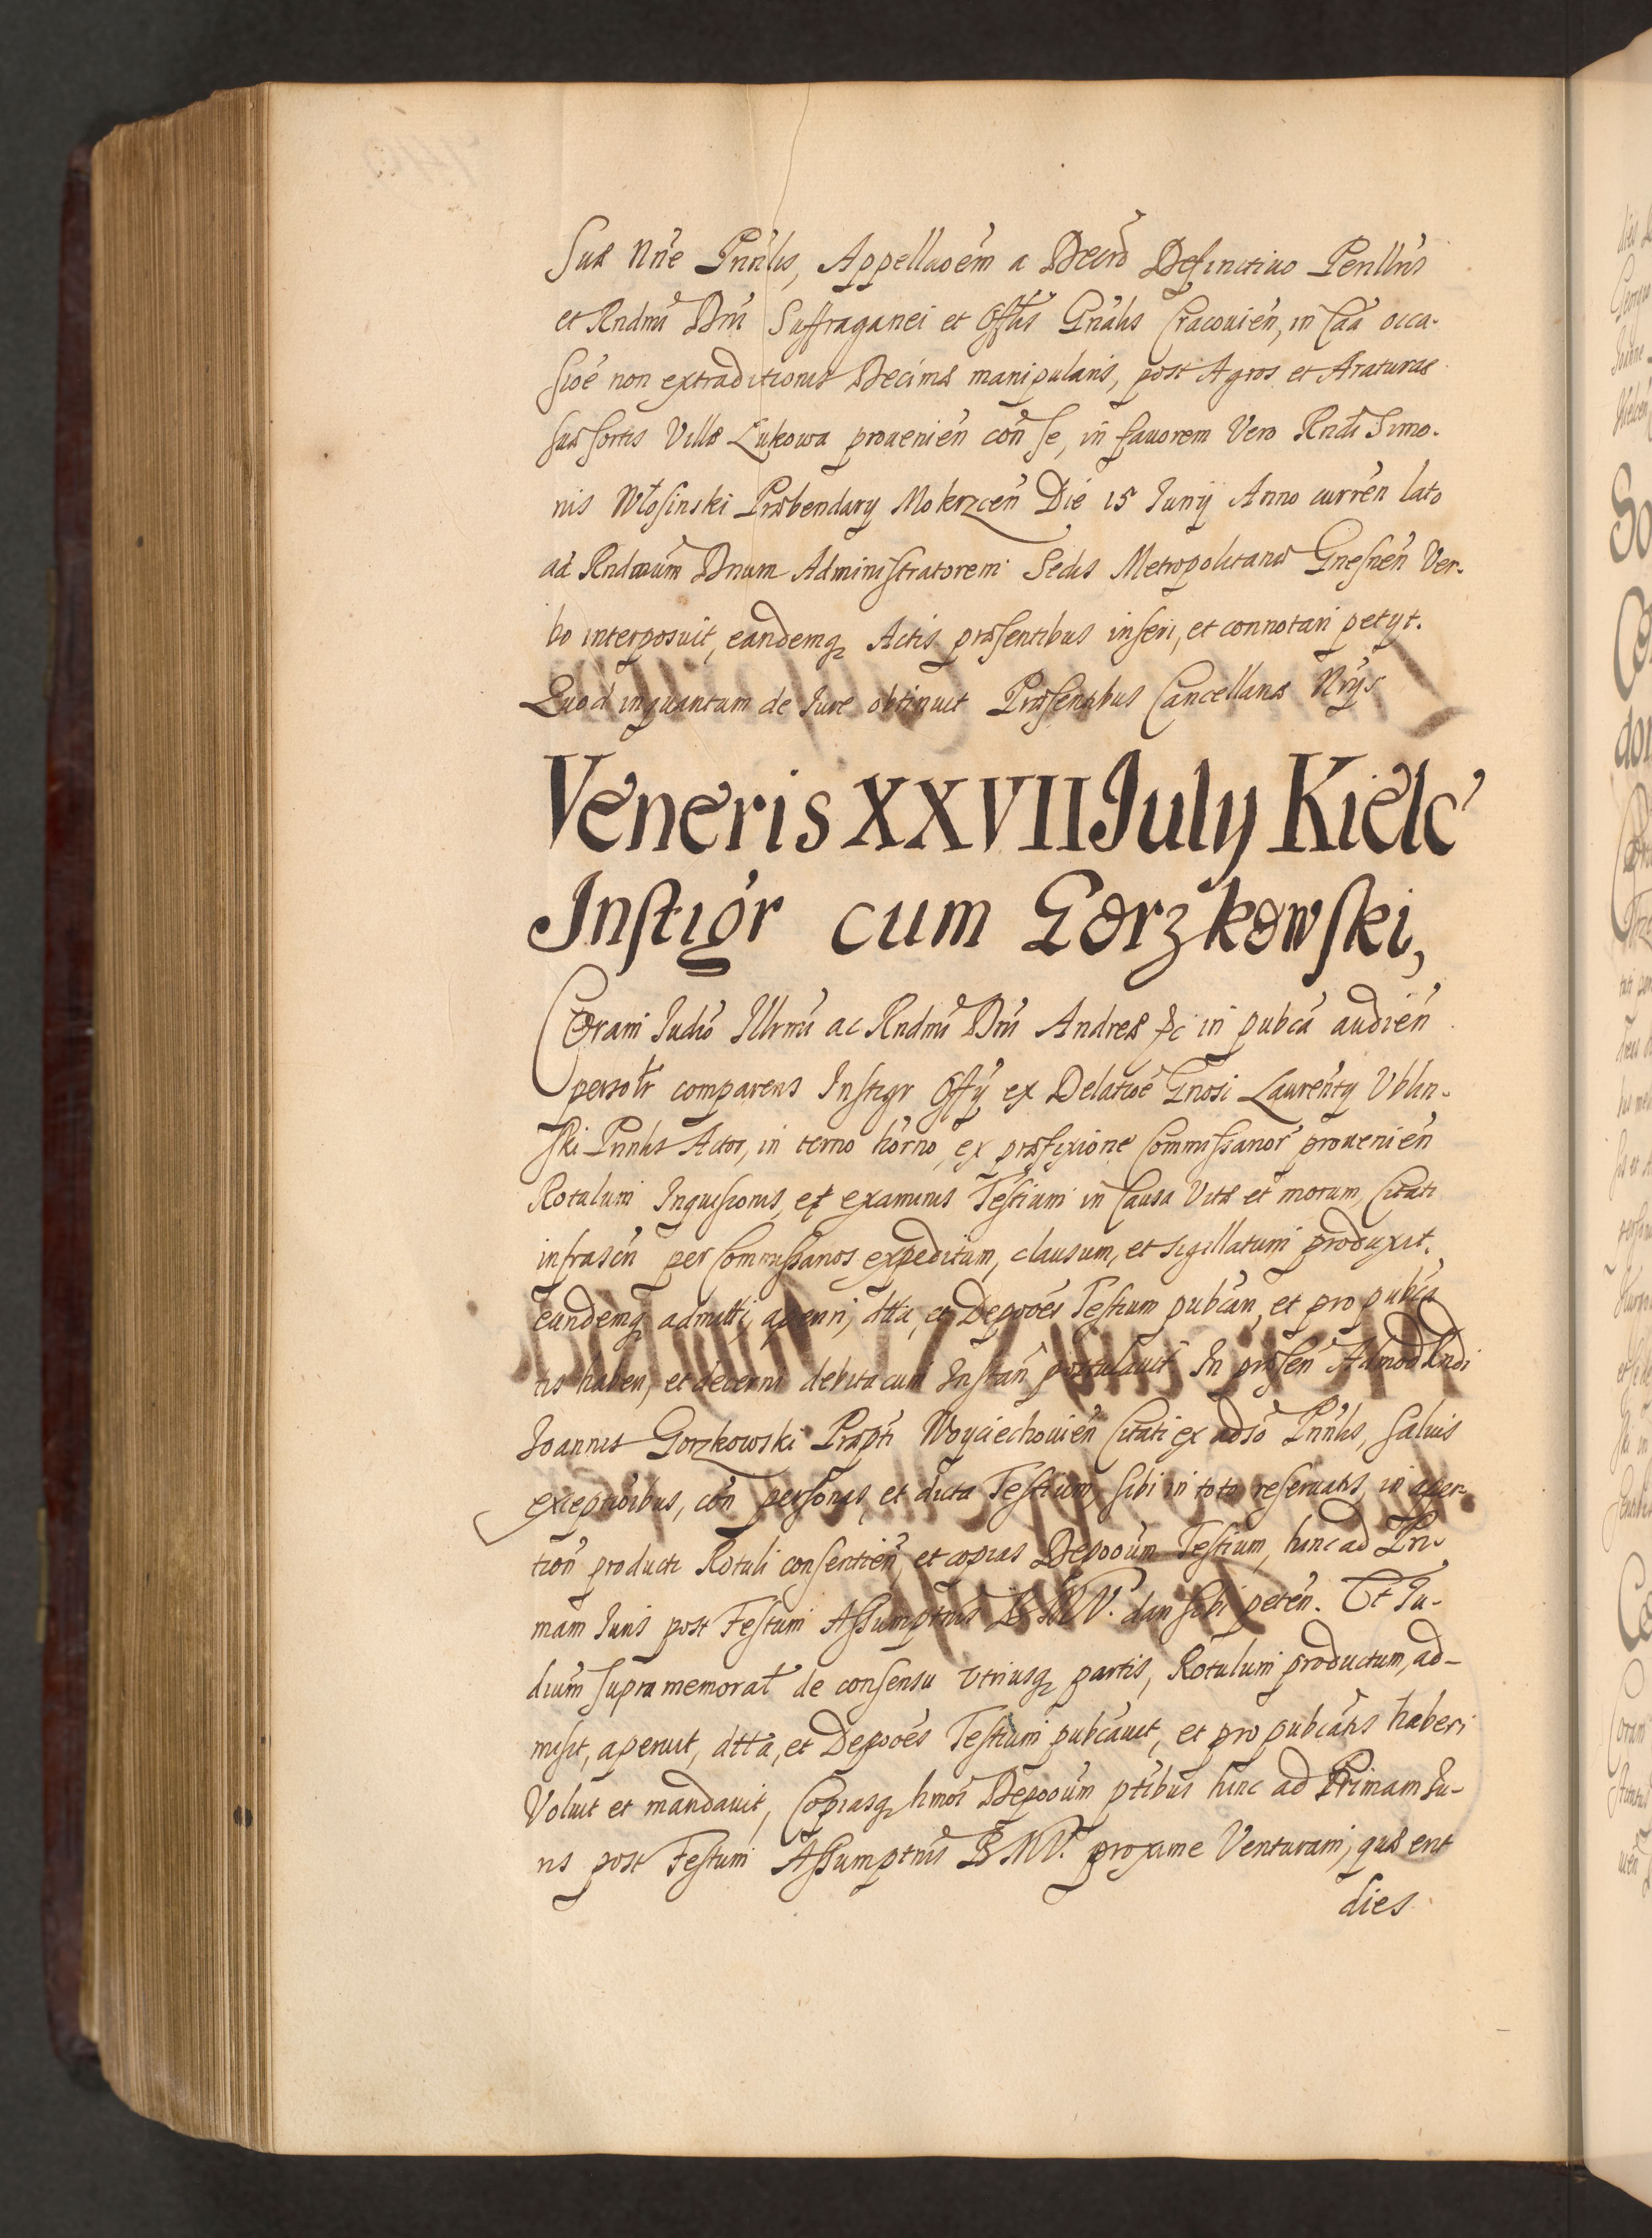 Suæ Nñe Pnñlis, Appellaõem a Decrõ Definitiuo Perillris
et Rndmi Dni Suffraganei et Offlis Gñalis Cracouien, in Caã occa-
sioe non extraditionis Decimæ manipularis, post Agros et Araturas
suæ sortis Villæ Lukowa prouenien con se, in fauorem Vero Rndi Simo-
nis Włosinski Præbendarij Mokrzcen Die 15 Junij Anno curren lato
ad Rndmum Dnum Administratorem Sedis Metropolitanæ Gnesnen Ver-
bo interposuit, eandemq Actis præsentibus inseri, et connotari petijt.
Quod inquantum de Jure obtinuit Præsentibus Cancellariæ Nrijs
Veneris XXVII July Kielc
Instigr cum Gorzkowski,
Coram Judio Illrmi ac Rndmi Dni Andreæ &c in pubca audien
persolr comparens Instigr Offij ex Delatioe Gnosi Laurentij Vblin-
ski Pnnlis Actor, in termo horno, ex præfixione Commissarior prouenien
Rotulum Inquisionis, et examinis Testium in Causa Vitæ et morum, Citati
infrascri per Commissarios expeditum, clausum, et sigillatum produxit.
eundemq admitti, aperiri, dtta, et Depoões Testium pubcari, et pro pubca
tis haberi, et decerni debita cum Instan postulauit In præsen Admod Rndi
Joannis Gorzkowski Præpti Woyciechouien Citati ex adso Pnnlis, saluis
exceptioibus, con personas, et dicta Testium, sibi in toto reseruatis, in aper-
tion producti Rotuli consentien, et copias Depooum Testium, hinc ad Pri-
mam Juris post Festum Assumptnis B.M.V. dari sibi peten. Et Ju-
dium supra memorat de consensu vtriusq partis, Rotulum productum, ad-
misit, aperuit, dtta, et Depoões Testium pubcauit, et pro pubcatis haberi
Voluit et mandauit, Copiasq hmoi Depooum ptibus hinc ad Primam Ju-
ris post Festum Assumptnis B.M.V. proxime Venturam, quæ erit
dies